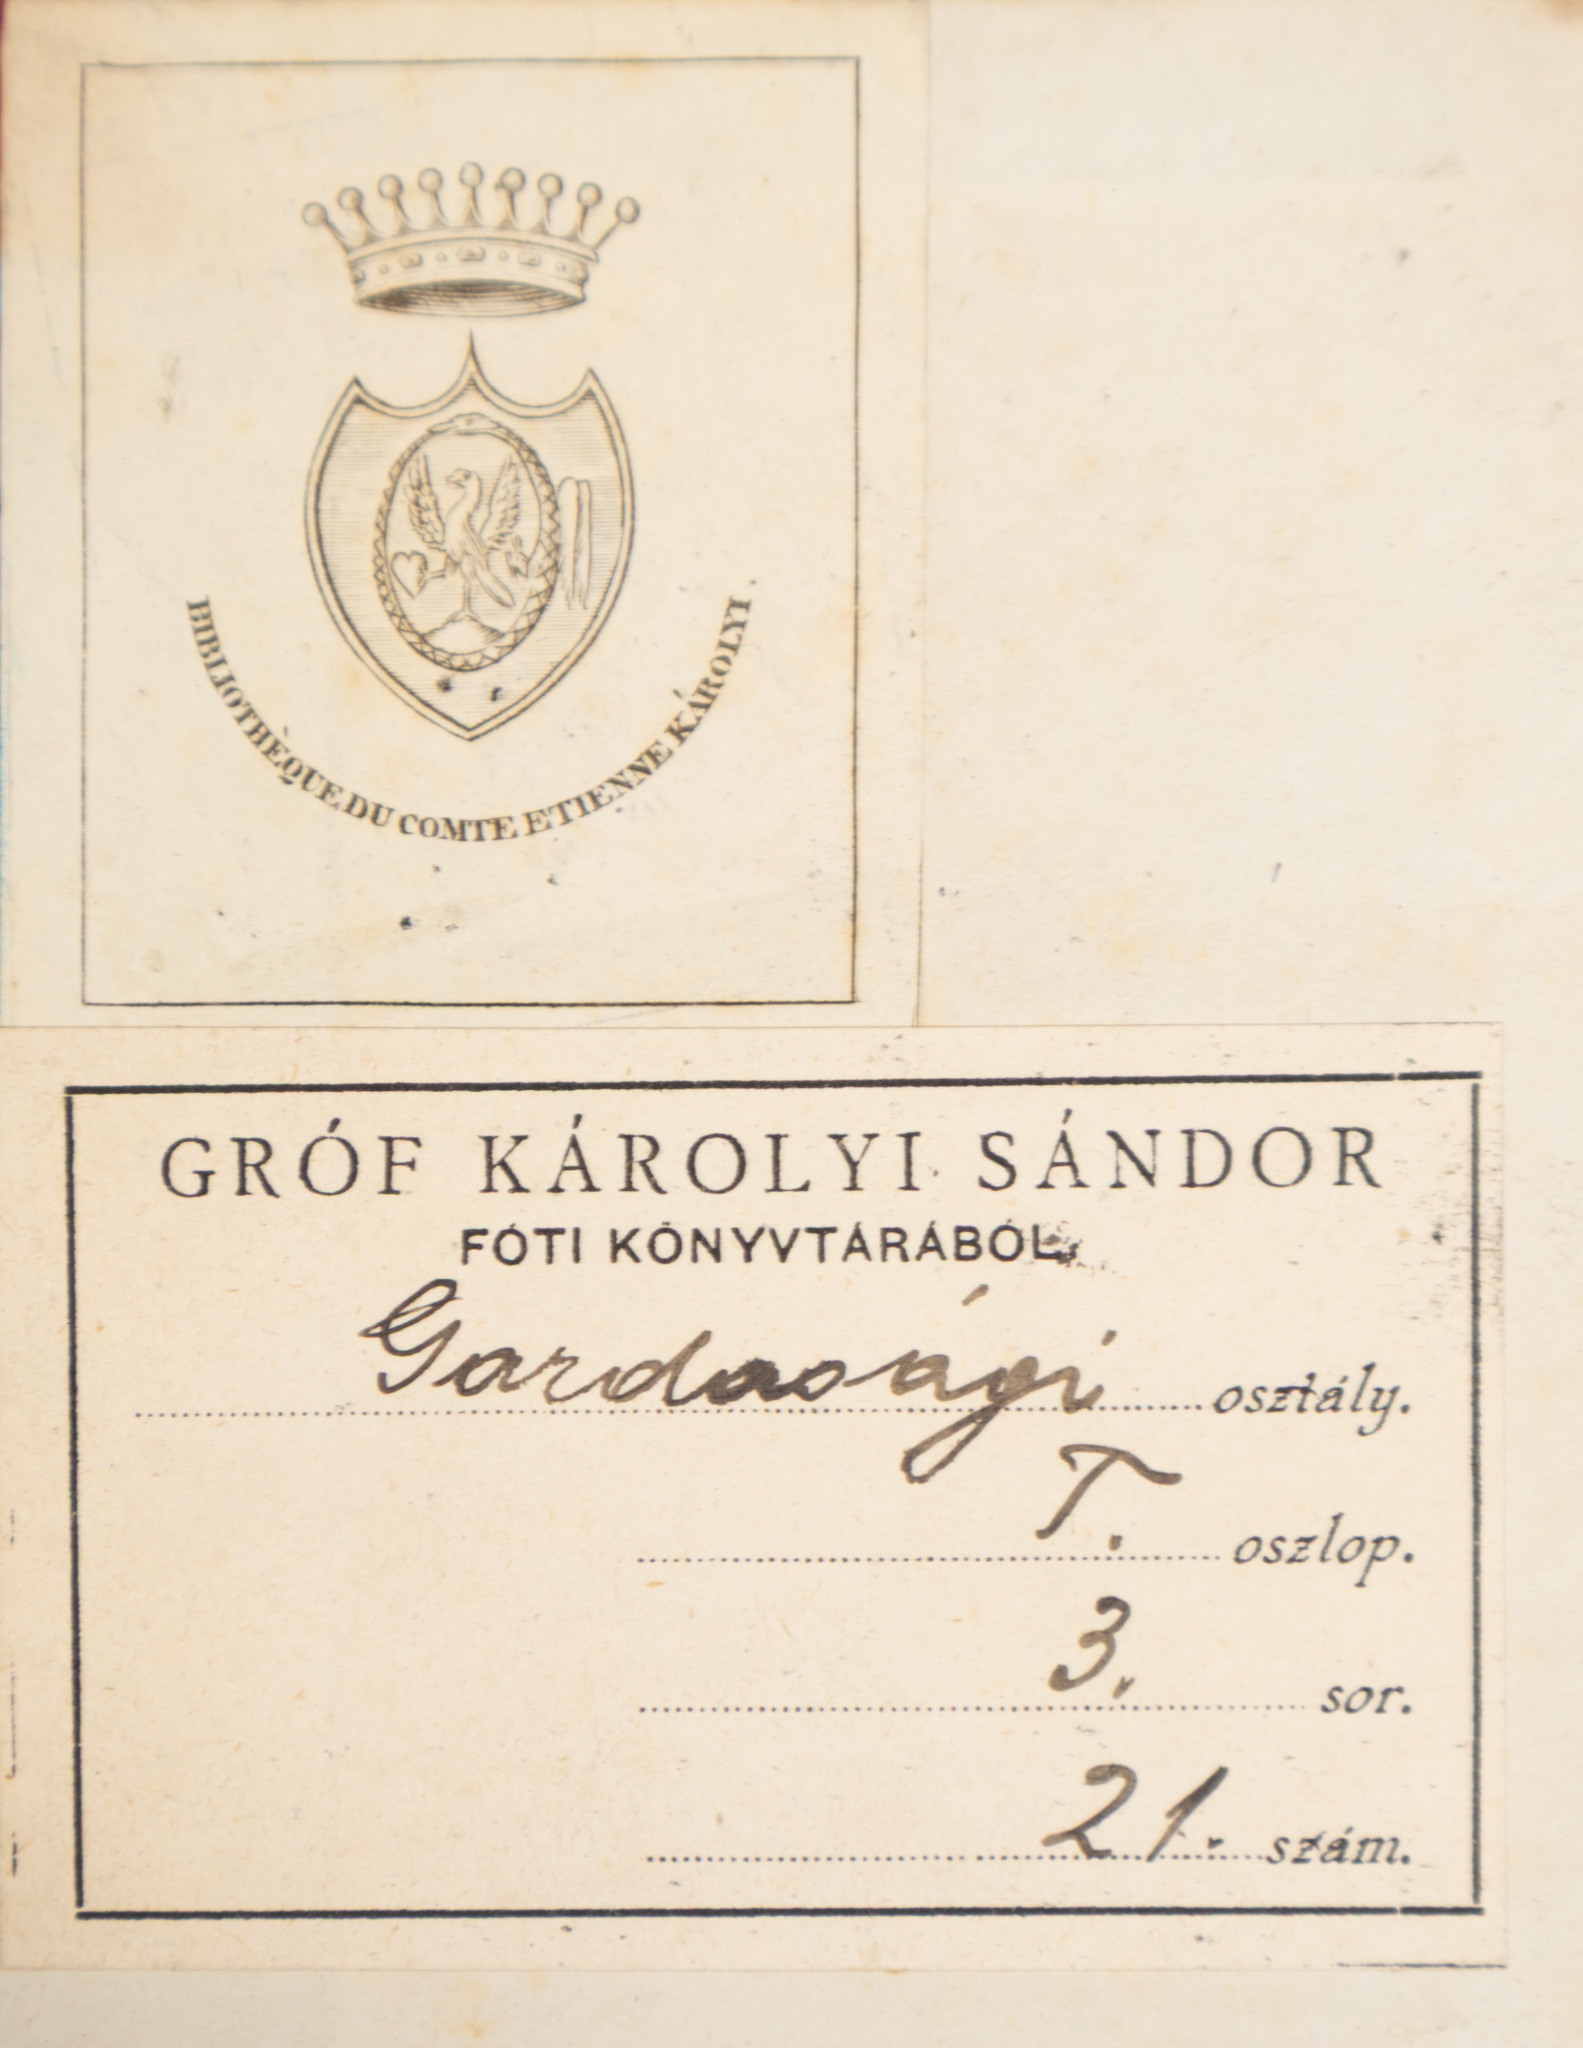 BIBLIOTHÈQUE DU COMTE ETIENNE KÁROLYI.
GRÓF KÁROLYI SÁNDOR
FÓTI KÖNYVTÁRÁBÓL.
Gazdasági osztály.
T. oszlop.
3. sor.
21. szám.